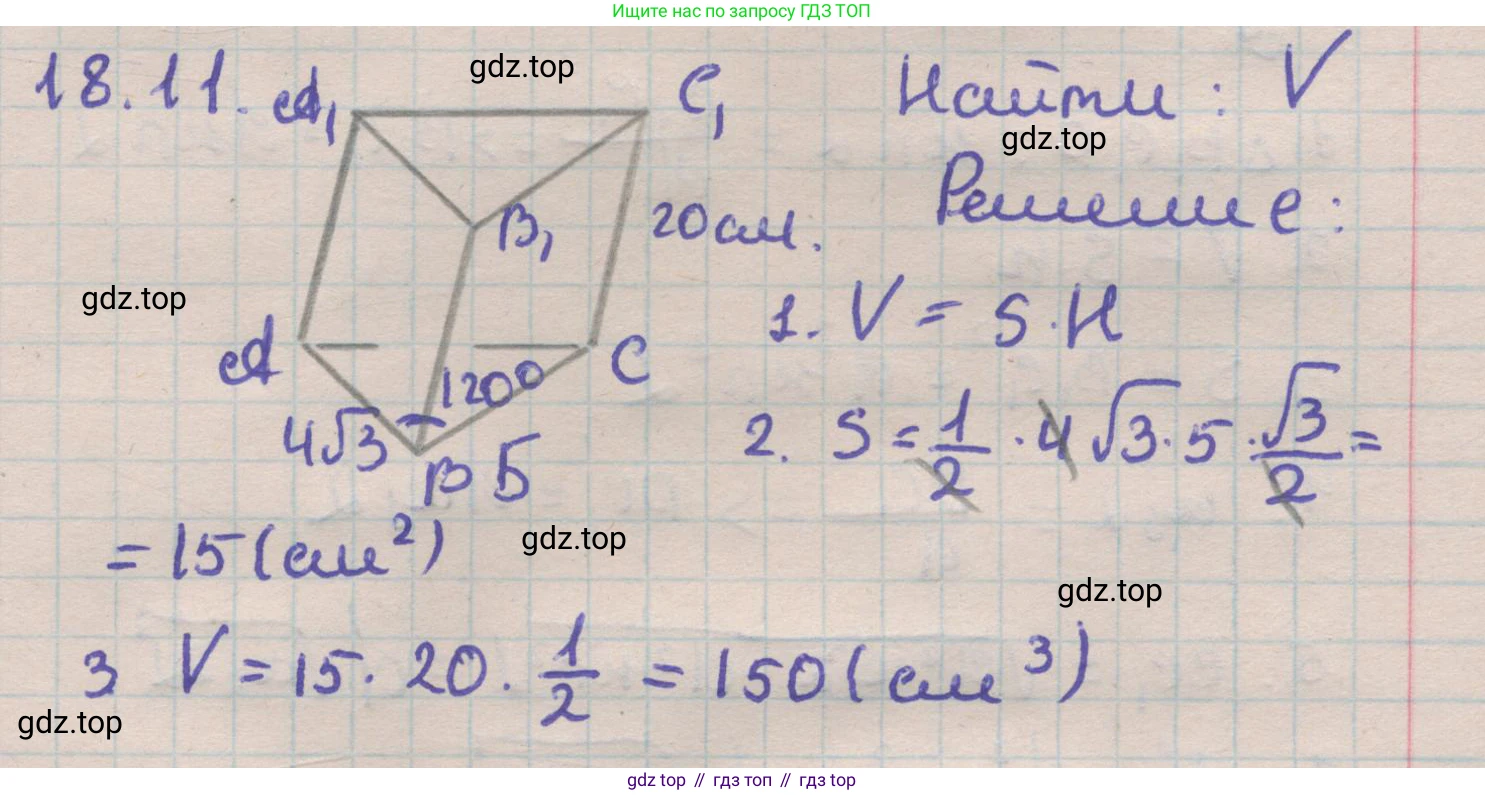 Ищите нас по запросу ГДЗ ТОП
18.11. A₁ gdz.top C₁ Найти: V
gdz.top
Решение:
B₁ 20см.
gdz.top
1. V = S·H
A 120° C
4√3 B 5
2. S = 1/2 · 4√3 · 5 · √3/2 =
= 15 (см²) gdz.top
gdz.top
3 V = 15 · 20 · 1/2 = 150 (см³)
gdz.top
gdz top // гдз топ // gdz top